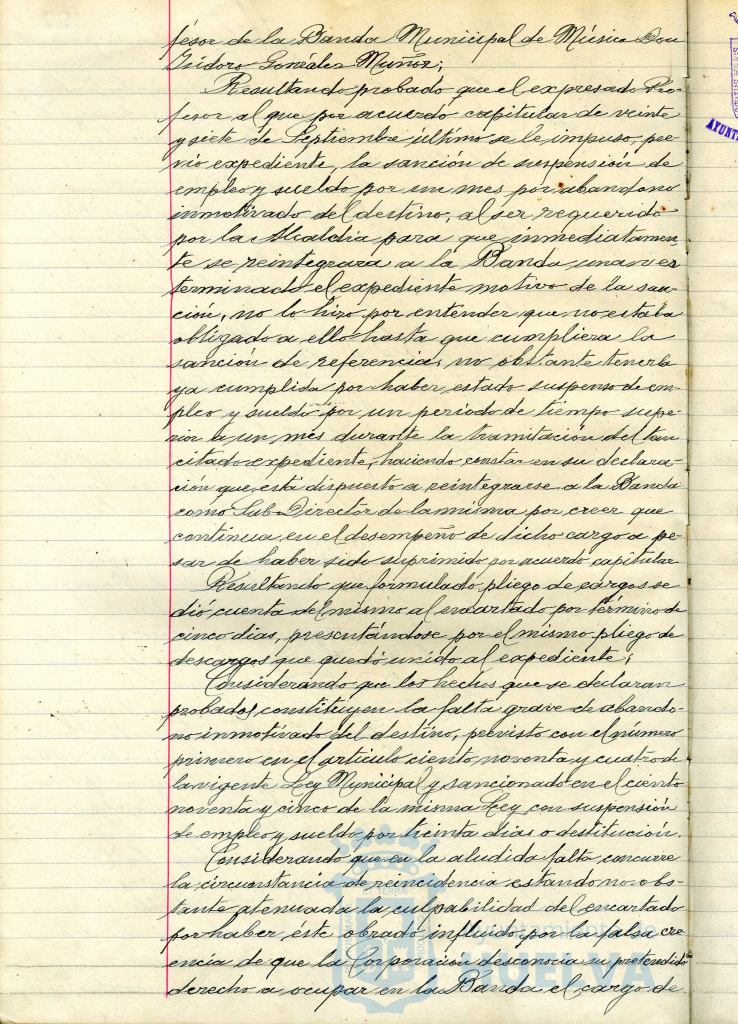 fesor de la Banda Municipal de Música Don
Isidoro González Muñoz;
Resultando probado que el expresado Pro-
fesor al que por acuerdo capitular de veinte
y siete de Septiembre último se le impuso, pre-
vio expediente, la sanción de suspensión de
empleo y sueldo por un mes por abandono
inmotivado del destino, al ser requerido
por la Alcaldía para que inmediatamen-
te se reintegrara a la Banda una vez
terminado el expediente motivo de la san-
ción, no lo hizo por entender que no estaba
obligado a ello hasta que cumpliera la
sanción de referencia, no obstante tenerla
ya cumplida por haber estado suspenso de em-
pleo y sueldo por un período de tiempo supe-
rior a un mes durante la tramitación del tan
citado expediente, haciendo constar en su declara-
ción que está dispuesto a reintegrarse a la Banda
como Sub-Director de la misma por creer que
continua en el desempeño de dicho cargo a pe-
sar de haber sido suprimido por acuerdo capitular
Resultando que formulado pliego de cargos se
dió cuenta del mismo al encartado por término de
cinco dias, presentándose por el mismo pliego de
descargos que quedó unido al expediente;
Considerando que los hechos que se declaran
probados constituyen la falta grave de abando-
no inmotivado del destino, previsto con el número
primero en el artículo ciento noventa y cuatro de
la vigente Ley Municipal y sancionado en el ciento
noventa y cinco de la misma Ley con suspensión
de empleo y sueldo por treinta dias o destitución.
Considerando que en la aludida falta concurre
la circunstancia de reincidencia estando no obs-
tante atenuada la culpabilidad del encartado
por haber éste obrado influido por la falsa cre-
encia de que la Corporación desconocia su pretendido
derecho a ocupar en la Banda el cargo de
AYUNT
Ayuntamiento de
HUELVA